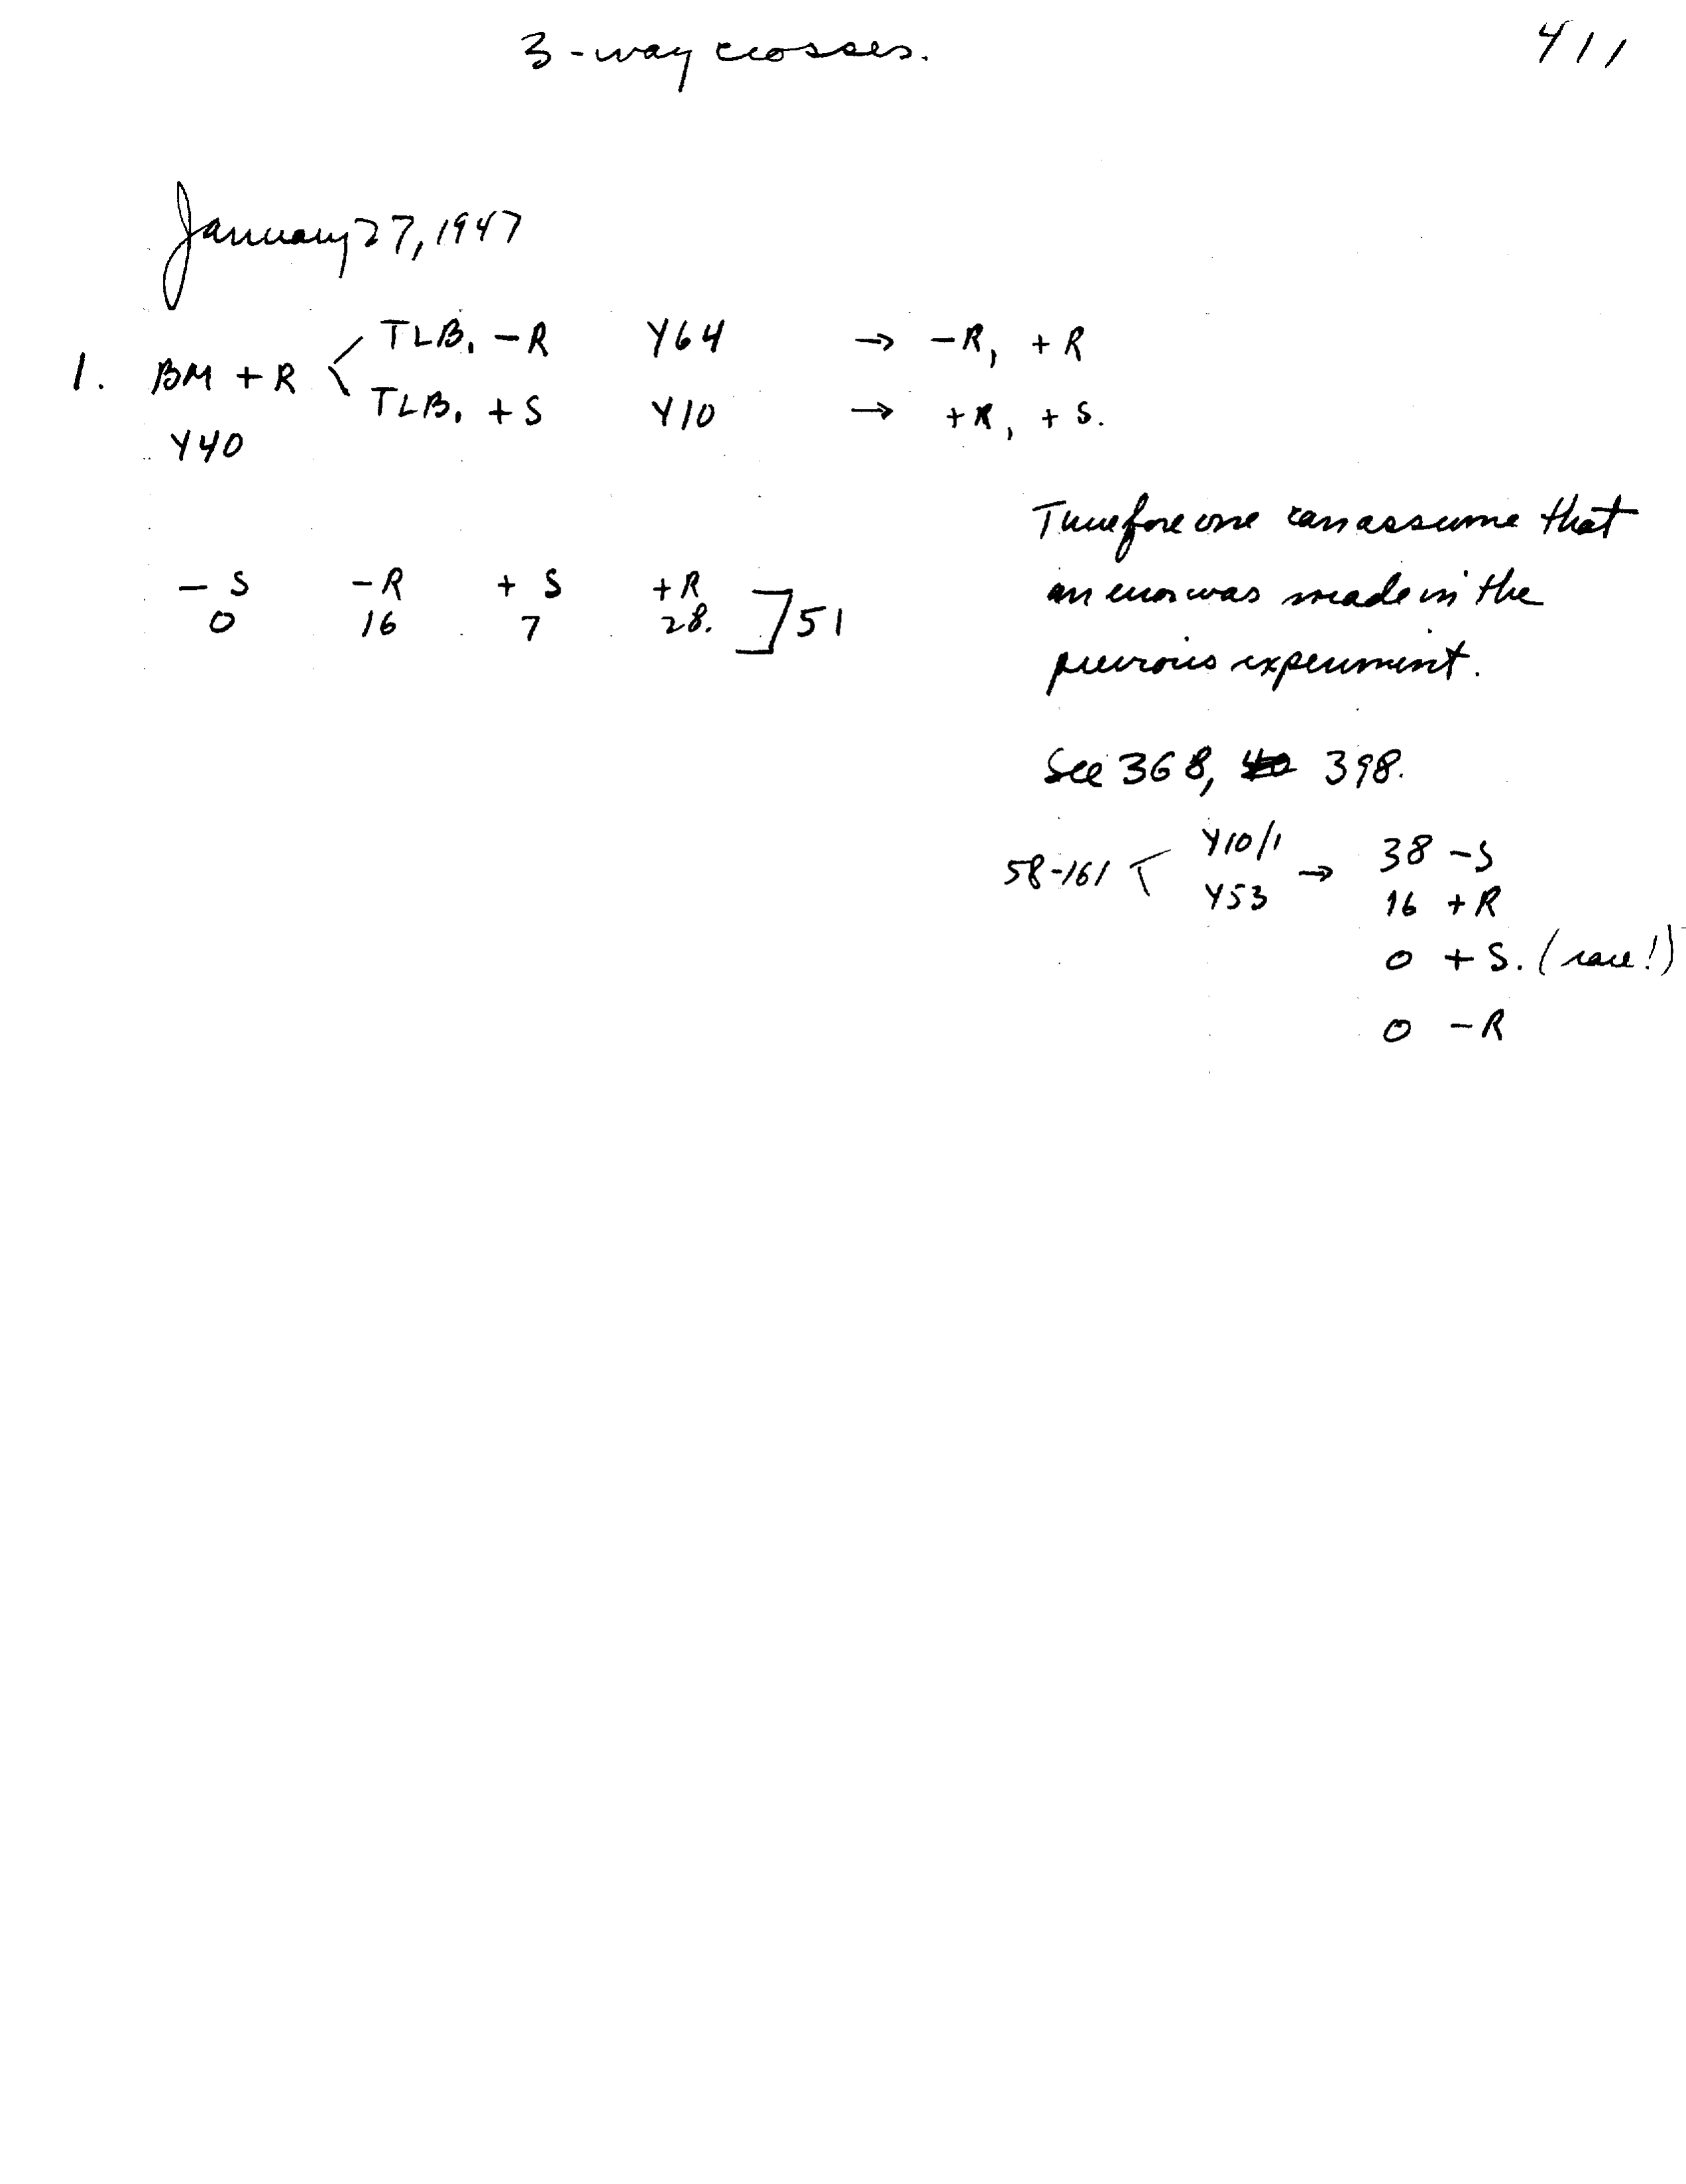 3-way crosses.
411
January 27, 1947
1. BM + R < TLB₁ -R Y64 → -R, +R
TLB₁ +S Y10 → +R, +S.
Y40
- S -R + S +R
0 16 7 28. ] 51
Therefore one can assume that
an error was made in the
previous experiment.
See 368, 398.
58-161 < Y10/1 → 38 -S
Y53 16 +R
0 +S. (rare!)
0 -R